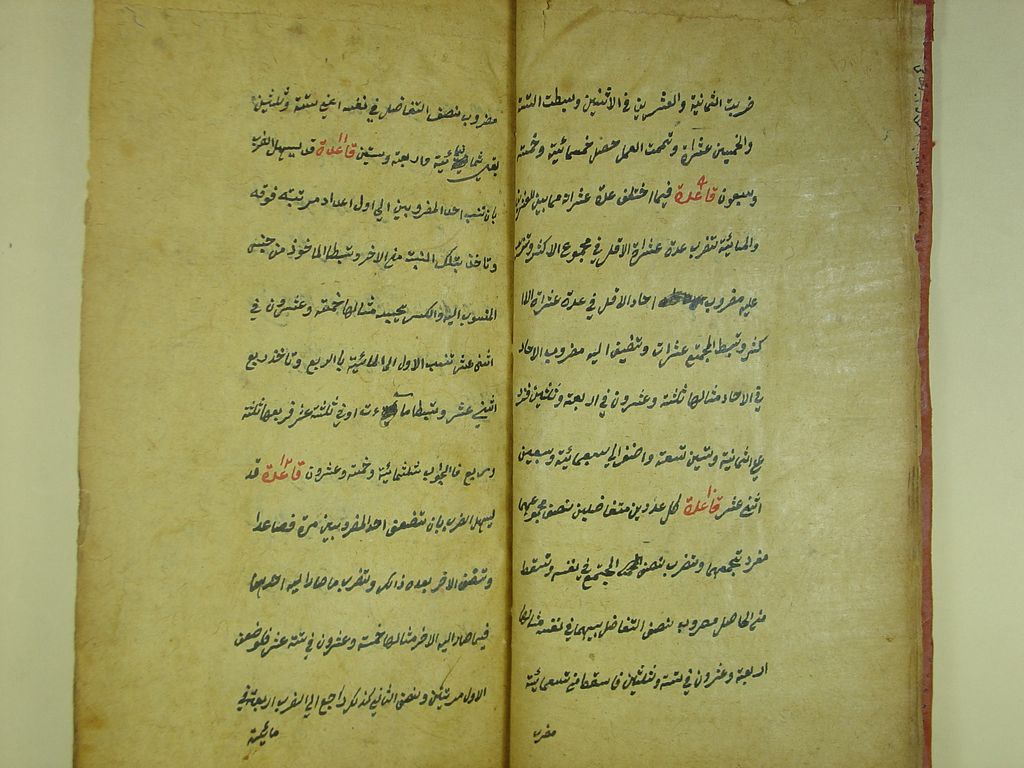 ضربت الثمانية والعشرين في الاثنين وبسطت الستة
والخمسين عشراة وتممت العمل حصل خمسمائية وخمسة
وسبعون قاعدة فيما اختلف عدة عشراته مما بين العشرة
والمائية تضرب عدة عشراة الاقل في مجموع الاكثر وتزيد
عليه مضروب احاد الاقل في عدة عشراة الا
كثر وتبسط المجتمع عشرات وتضيف اليه مضروب الاحاد
في الاحاد مثالها ثلثة وعشرون في اربعة وثلثين فزد
علي الثمانية وستين تسعة واضف الي سبعمائية وسبعين
اثني عشر قاعدة كل عددين متفاضلين نصف مجموعهما
مفرد تجمعهما وتضرب نصف المجتمع في نفسه وتسقط
من الحاصل مضروب نصف التفاضل بينهما في نفسه مثالها
اربعة وعشرون في ستة وثلثين فاسقط من تسعمائية
مضرب
مضروب نصف التفاضل في نفسه اعني ستة وثلثين
بقي ثمانمائية واربعة وستين قاعدة قد يسهل الضرب
بان تنسب احد المضروبين الي اول اعداد مرتبته فوقه
وتاخذ بتلك النسبة من الاخر وتبسط الماخوذ من جنس
المنسوب اليه والكسر بحسبه مثالها خمسة وعشرون في
اثني عشر تنسب الاول الي المائية بالربع وتاخذ ربع
اثني عشر وتبسطها مات او في ثلثة عشر فربعها ثلثة
وربع فالجواب ثلثمائية وخمسة وعشرون قاعدة قد
يسهل الضرب بان تضعف احد المضروبين مرة فصاعدا
وتنصف الاخر بعدة ذالك وتضرب ما صار اليه احدهما
فيما صار اليه الاخر مثالها خمسة وعشرون في ستة عشر فلو ضعف
الاول مرتين ونصف الثاني كذلك لرجع الي الضرب اربعة في
مائية